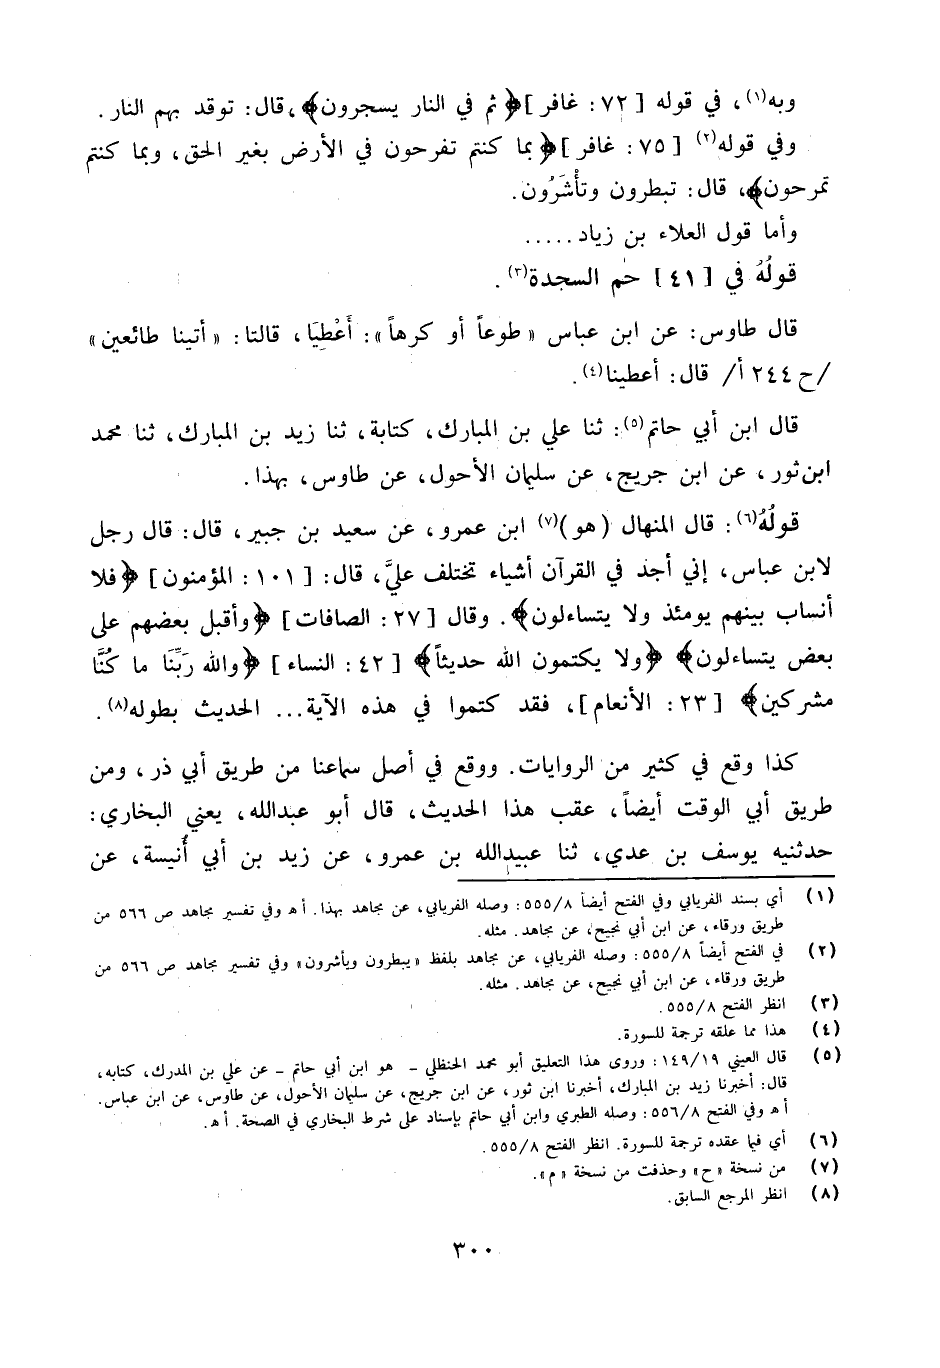 وبه(١)، في قوله [ ٧٢: غافر ] ﴿ ثم في النار يسجرون﴾، قال: توقد بهم النار.
وفي قوله(٢) [ ٧٥: غافر ] ﴿ بما كنتم تفرحون في الأرض بغير الحق، وبما كنتم
تمرحون﴾، قال: تبطرون وتأْشَرُون.
وأما قول العلاء بن زياد.....
قولُهُ في [ ٤١ ] حٰم السجدة(٣).
قال طاوس: عن ابن عباس « طوعاً أو كرهاً»: أَعْطِيَا، قالتا: « أتينا طائعين»
/ح ٢٤٤ أ/ قال: أعطينا(٤).
قال ابن أبي حاتم(٥): ثنا علي بن المبارك، كتابة، ثنا زيد بن المبارك، ثنا محمد
ابن ثور، عن ابن جريج، عن سليمان الأحول، عن طاوس، بهذا.
قولُهُ(٦): قال المنهال ( هو )(٧) ابن عمرو، عن سعيد بن جبير، قال: قال رجل
لابن عباس، إني أجد في القرآن أشياء تختلف عليَّ، قال: [ ١٠١: المؤمنون ] ﴿ فلا
أنساب بينهم يومئذ ولا يتساءلون﴾. وقال [ ٢٧: الصافات ] ﴿ وأقبل بعضهم على
بعض يتساءلون﴾ ﴿ ولا يكتمون الله حديثاً﴾ [ ٤٢: النساء ] ﴿ والله رَبِّنَا ما كُنَّا
مشركين﴾ [ ٢٣: الأنعام ]، فقد كتموا في هذه الآية... الحديث بطوله(٨).
كذا وقع في كثير من الروايات. ووقع في أصل سماعنا من طريق أبي ذر، ومن
طريق أبي الوقت أيضاً، عقب هذا الحديث، قال أبو عبدالله، يعني البخاري:
حدثنيه يوسف بن عدي، ثنا عبيدالله بن عمرو، عن زيد بن أبي أُنيسة، عن
(١) أي بسند الفريابي وفي الفتح أيضاً ٥٥٥/٨: وصله الفريابي، عن مجاهد بهذا. أ هـ وفي تفسير مجاهد ص ٥٦٦ من
طريق ورقاء، عن ابن أبي نجيح، عن مجاهد. مثله.
(٢) في الفتح أيضاً ٥٥٥/٨: وصله الفريابي، عن مجاهد بلفظ « يبطرون ويأشرون» وفي تفسير مجاهد ص ٥٦٦ من
طريق ورقاء، عن ابن أبي نجيح، عن مجاهد. مثله.
(٣) انظر الفتح ٥٥٥/٨.
(٤) هذا مما علقه ترجمة للسورة.
(٥) قال العيني ١٤٩/١٩: وروى هذا التعليق أبو محمد الحنظلي - هو ابن أبي حاتم - عن علي بن المدرك، كتابه،
قال: أخبرنا زيد بن المبارك، أخبرنا ابن ثور، عن ابن جريج، عن سليمان الأحول، عن طاوس، عن ابن عباس.
أ هـ وفي الفتح ٥٥٦/٨: وصله الطبري وابن أبي حاتم بإسناد على شرط البخاري في الصحة. أ هـ.
(٦) أي فيما عقده ترجمة للسورة. انظر الفتح ٥٥٥/٨.
(٧) من نسخة « ح» وحذفت من نسخة « م».
(٨) انظر المرجع السابق.
٣٠٠